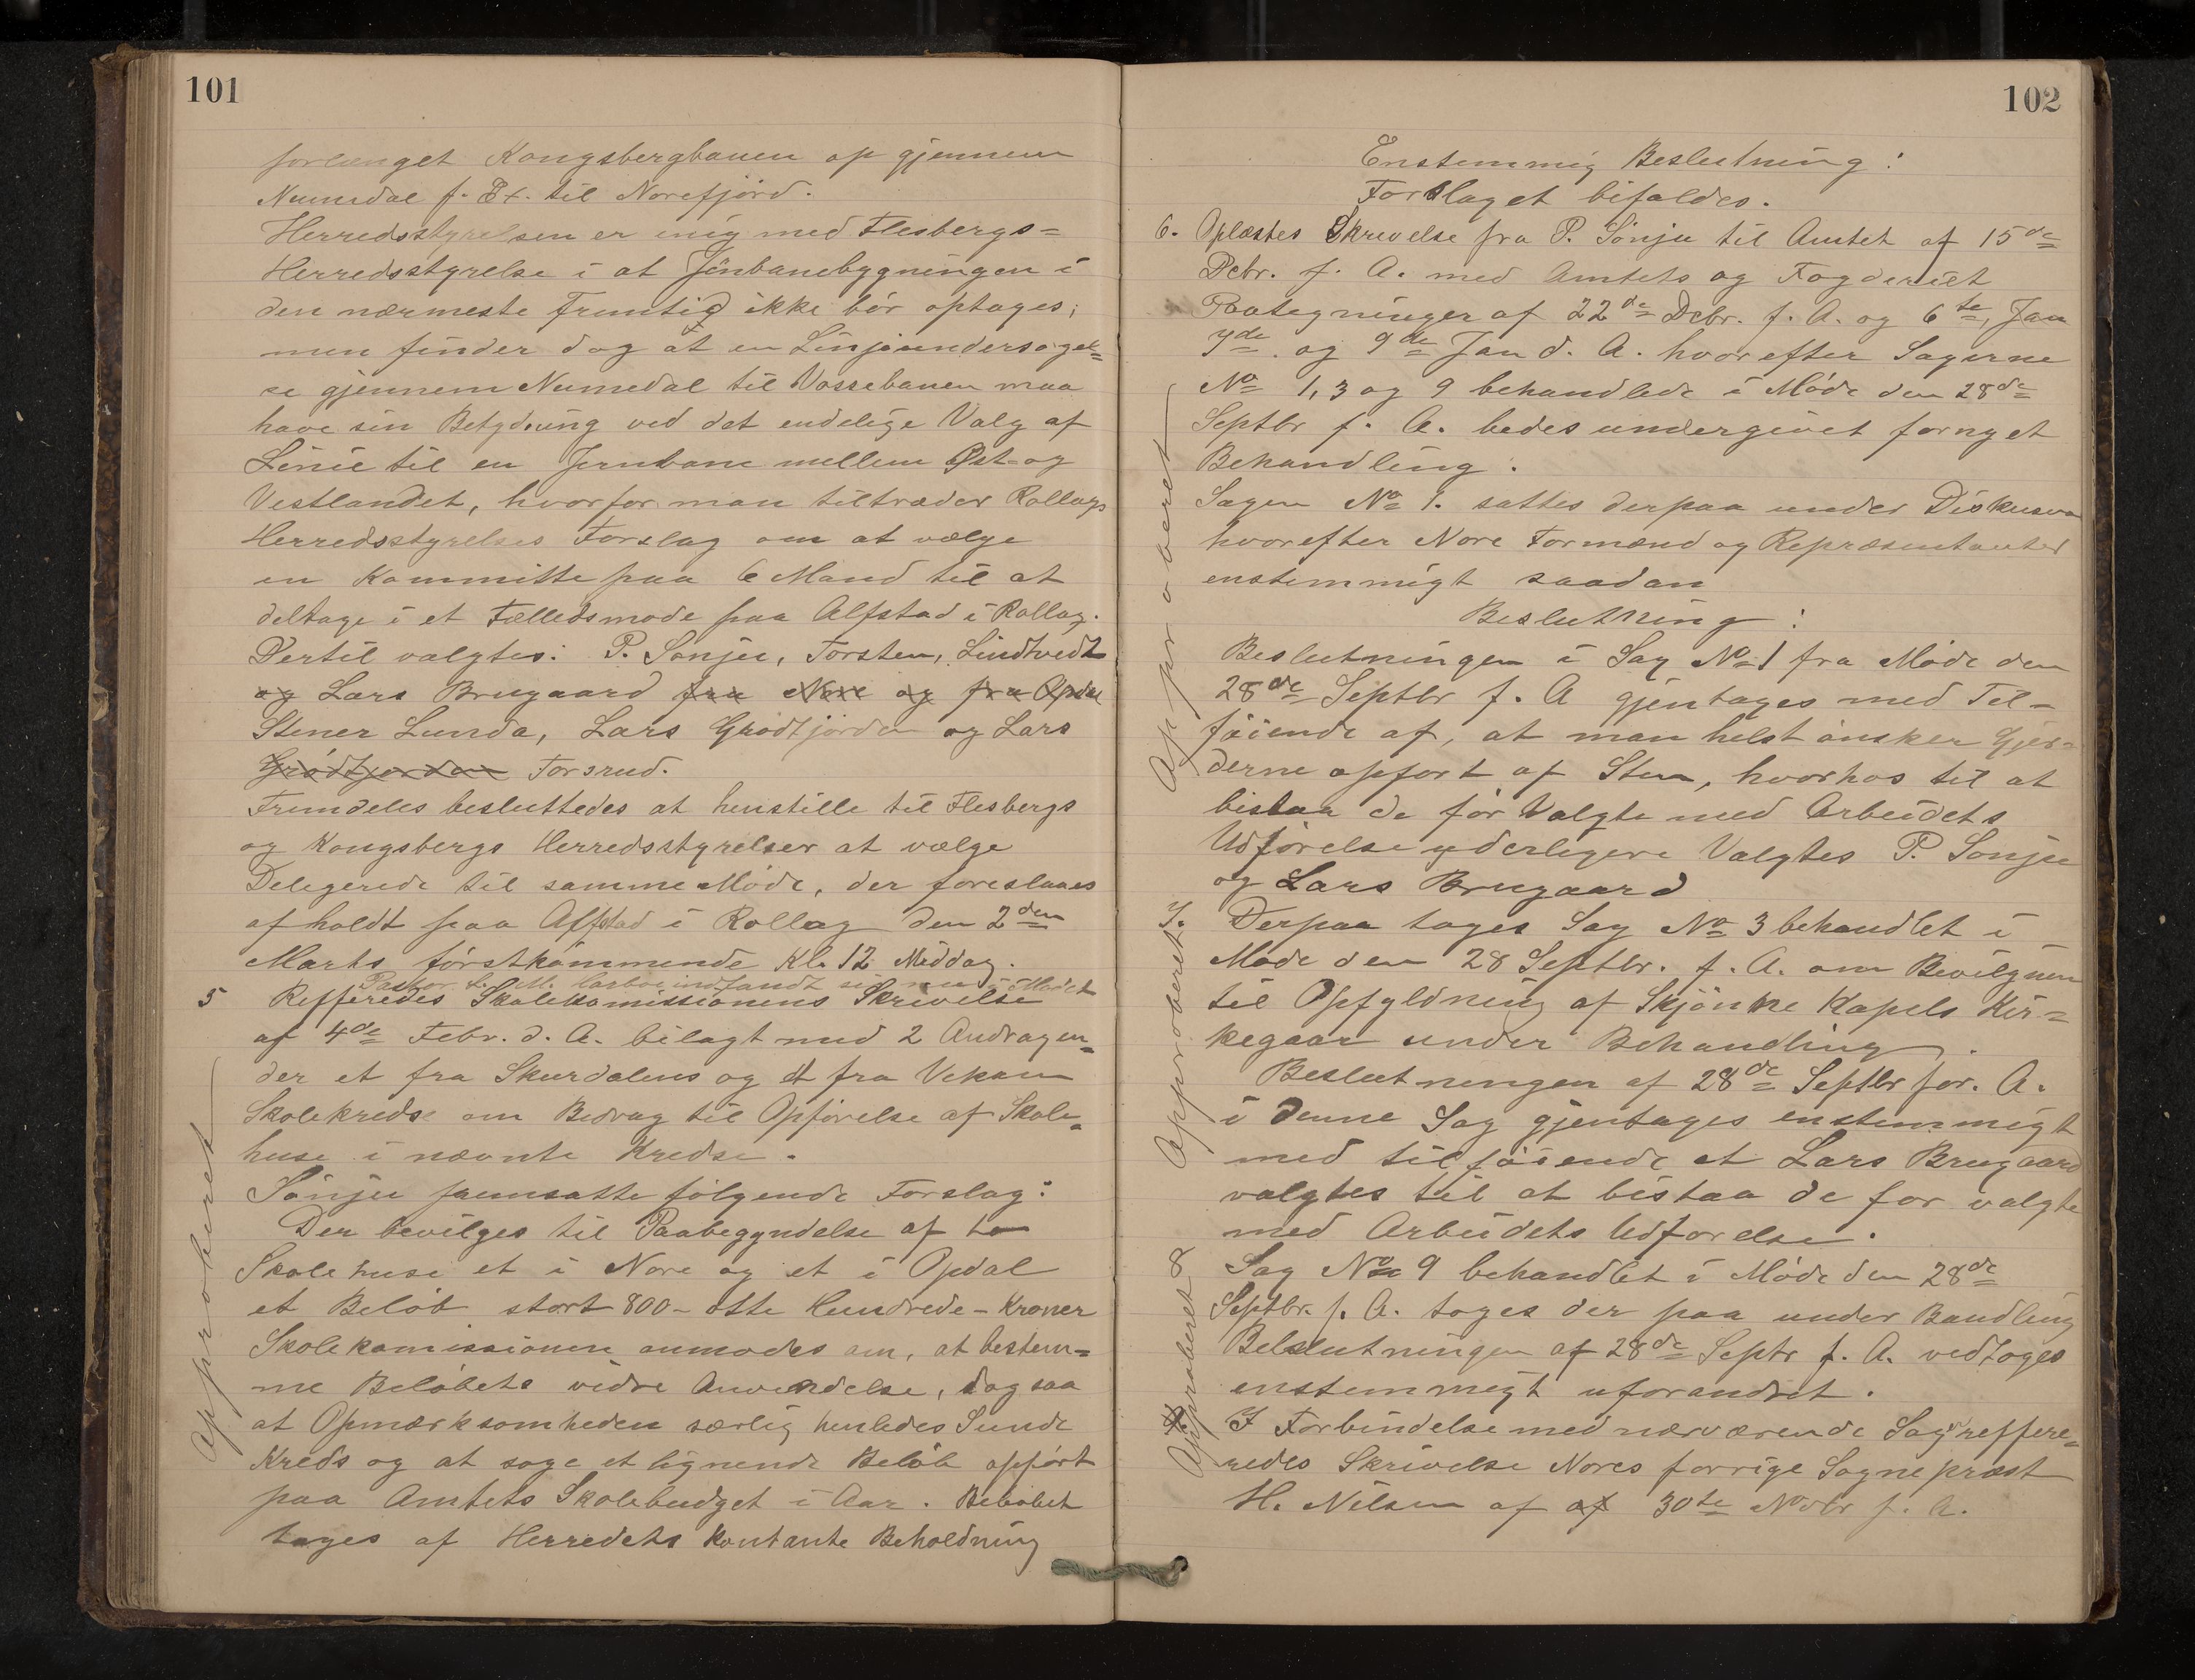 101
forlænget Kongsbergbanen op gjennem
Numedal f. Ex. til Norefjord.
Herredsstyrelsen er enig med Flesbergs=
Herredsstyrelse i at Jernbanebygningen i
den nærmeste Fremtid ikke bör optages;
men finder dog at en Linjeundersøgel=
se gjennem Numedal til Vossebanen maa
have sin Betydning ved det endelige Valg af
Linie til en Jernbane mellem Øst- og
Vestlandet, hvorfor man tiltræder Rollags
Herredsstyrelses Forslag om at vælge
en Kommitte paa 6 Mand til at
deltage i et Fælledsmøde paa Alfstad i Rollag.
Dertil valgtes: P. Sönju, Torsten, Lindtvedt
og Lars Brugaard fra Nore og fra Opdal
Stener Lunda, Lars Grödtjorden og Lars
Grödtjorden Forsrud.
Fremdeles besluttedes at henstille til Flesbergs
og Kongsbergs Herredsstyrelser at vælge
Delegerede til samme Möde, der foreslaaes
afholdt paa Alfstad i Rollag den 2den
Marts förstkommende Kl. 12 Middag.
Pastor indfandt sig nu i Mödet
5 Refferedes Skolekomissionens Skrivelse
af 4de Febr. d. A. bilagt med 2 Andragen=
der et fra Skurdalens og et fra Vikan
Skolekreds om Bidrag til Opförelse af Skole=
huse i nævnte Kredse.
Sönju fremsatte fölgende Forslag:
Der bevilges til Paabegyndelse af to
Skolehuse et i Nore og et i Opdal
et Belöb stort 800 - otte Hundrede - Kroner
Skolekomissionen anmodes om, at bestem=
me Belöbets vidre Anvendelse, dog saa
at Opmærksomheden særlig henledes Sunde
Kreds og at søge et lignende Belöb opfört
paa Amtets Skolebudget i Aar. Belöbet
tages af Herredets kontante Beholdning
Approberet
102
Enstemmig Beslutning:
Forslaget bifaldes.
6. Oplæstes Skrivelse fra P. Sönju til Amtet af 15de
Debr. f. A. med Amtets og Fogderiet
Paategninger af 22de Debr. f. A. og 6te, Jan
7de. og 9de Jan d. A. hvorefter Sagerne
No 1, 3 og 9 behandlede i Möde den 28de
Septbr f. A. bedes undergivet fornyet
Behandling.
Sagen No 1. sattes derpaa under Diskusion
hvorefter Nore Formænd og Repræsentanter
enstemmigt saadan
Beslutning:
Beslutningen i Sag No 1 fra Möde den
28de Septbr f. A gjentages med Til=
föiende af, at man helst önsker Gjer=
derne opfört af Sten, hvorhos til at
bistaa de för Valgte med Arbeidets
Udförelse yderligere Valgtes P. Sönju
og Lars Brugaard
7. Derpaa toges Sag No 3 behandlet i
Möde den 28 Septbr. f. A. om Bevilgnin
til Opfyldning af Skjönne Kapels Kir=
kegaar under Behandling.
Beslutningen af 28de Septbr for. A.
i denne Sag gjentages enstemmigt
med tilföiende at Lars Brugaard
valgtes til at bistaa de for valgte
med Arbeidets Udförelse.
8 Sag No 9 behandlet i Möde den 28de
Septbr. f. A. toges der paa under Bandling
Belslutningen af 28de Septr f. A. vedtoges
enstemmigt uforandret.
I Forbindelse med nærværende Sag reffere=
redes Skrivelse Nores forrige Sogneprest
H. Nilsen af af 30te Novbr f. A.
Approberet
Approberet
Approberet